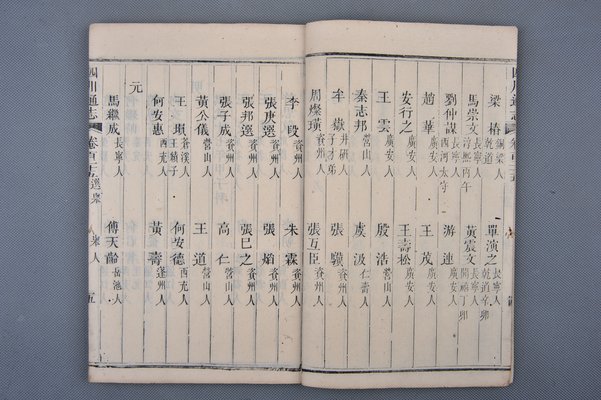 四川通志
梁椿 銅梁人 乾道
單演之 長寧人 乾道辛卯
馬崇文 長寧人 淳熙丙午
黃震文 長寧人 開禧丁卯
劉仲謀 長寧人 西河太守
游連 廣安人
趙華 廣安人
王茂 廣安人
安行之 廣安人
王壽松 廣安人
王雲 廣安人
殷浩 廣安人
秦志邦 營山人
虞汲 仁壽人
牟嶽 井研人 子才弟
張驥 資州人
周燦璜 資州人
張互臣 資州人
李段 資州人
朱霖 資州人
張庚選 資州人
張熖 資州人
張邦選 資州人
張巳之 資州人
張子成 資州人
高仁 營山人
黃公儀 營山人
王道 營山人
王 蒼溪人
何安德 西充人
何安惠 西充人
黃壽 蓬州人
元
馬繼成 長寧人
傅天齡 岳池人
四川通志
選舉
五